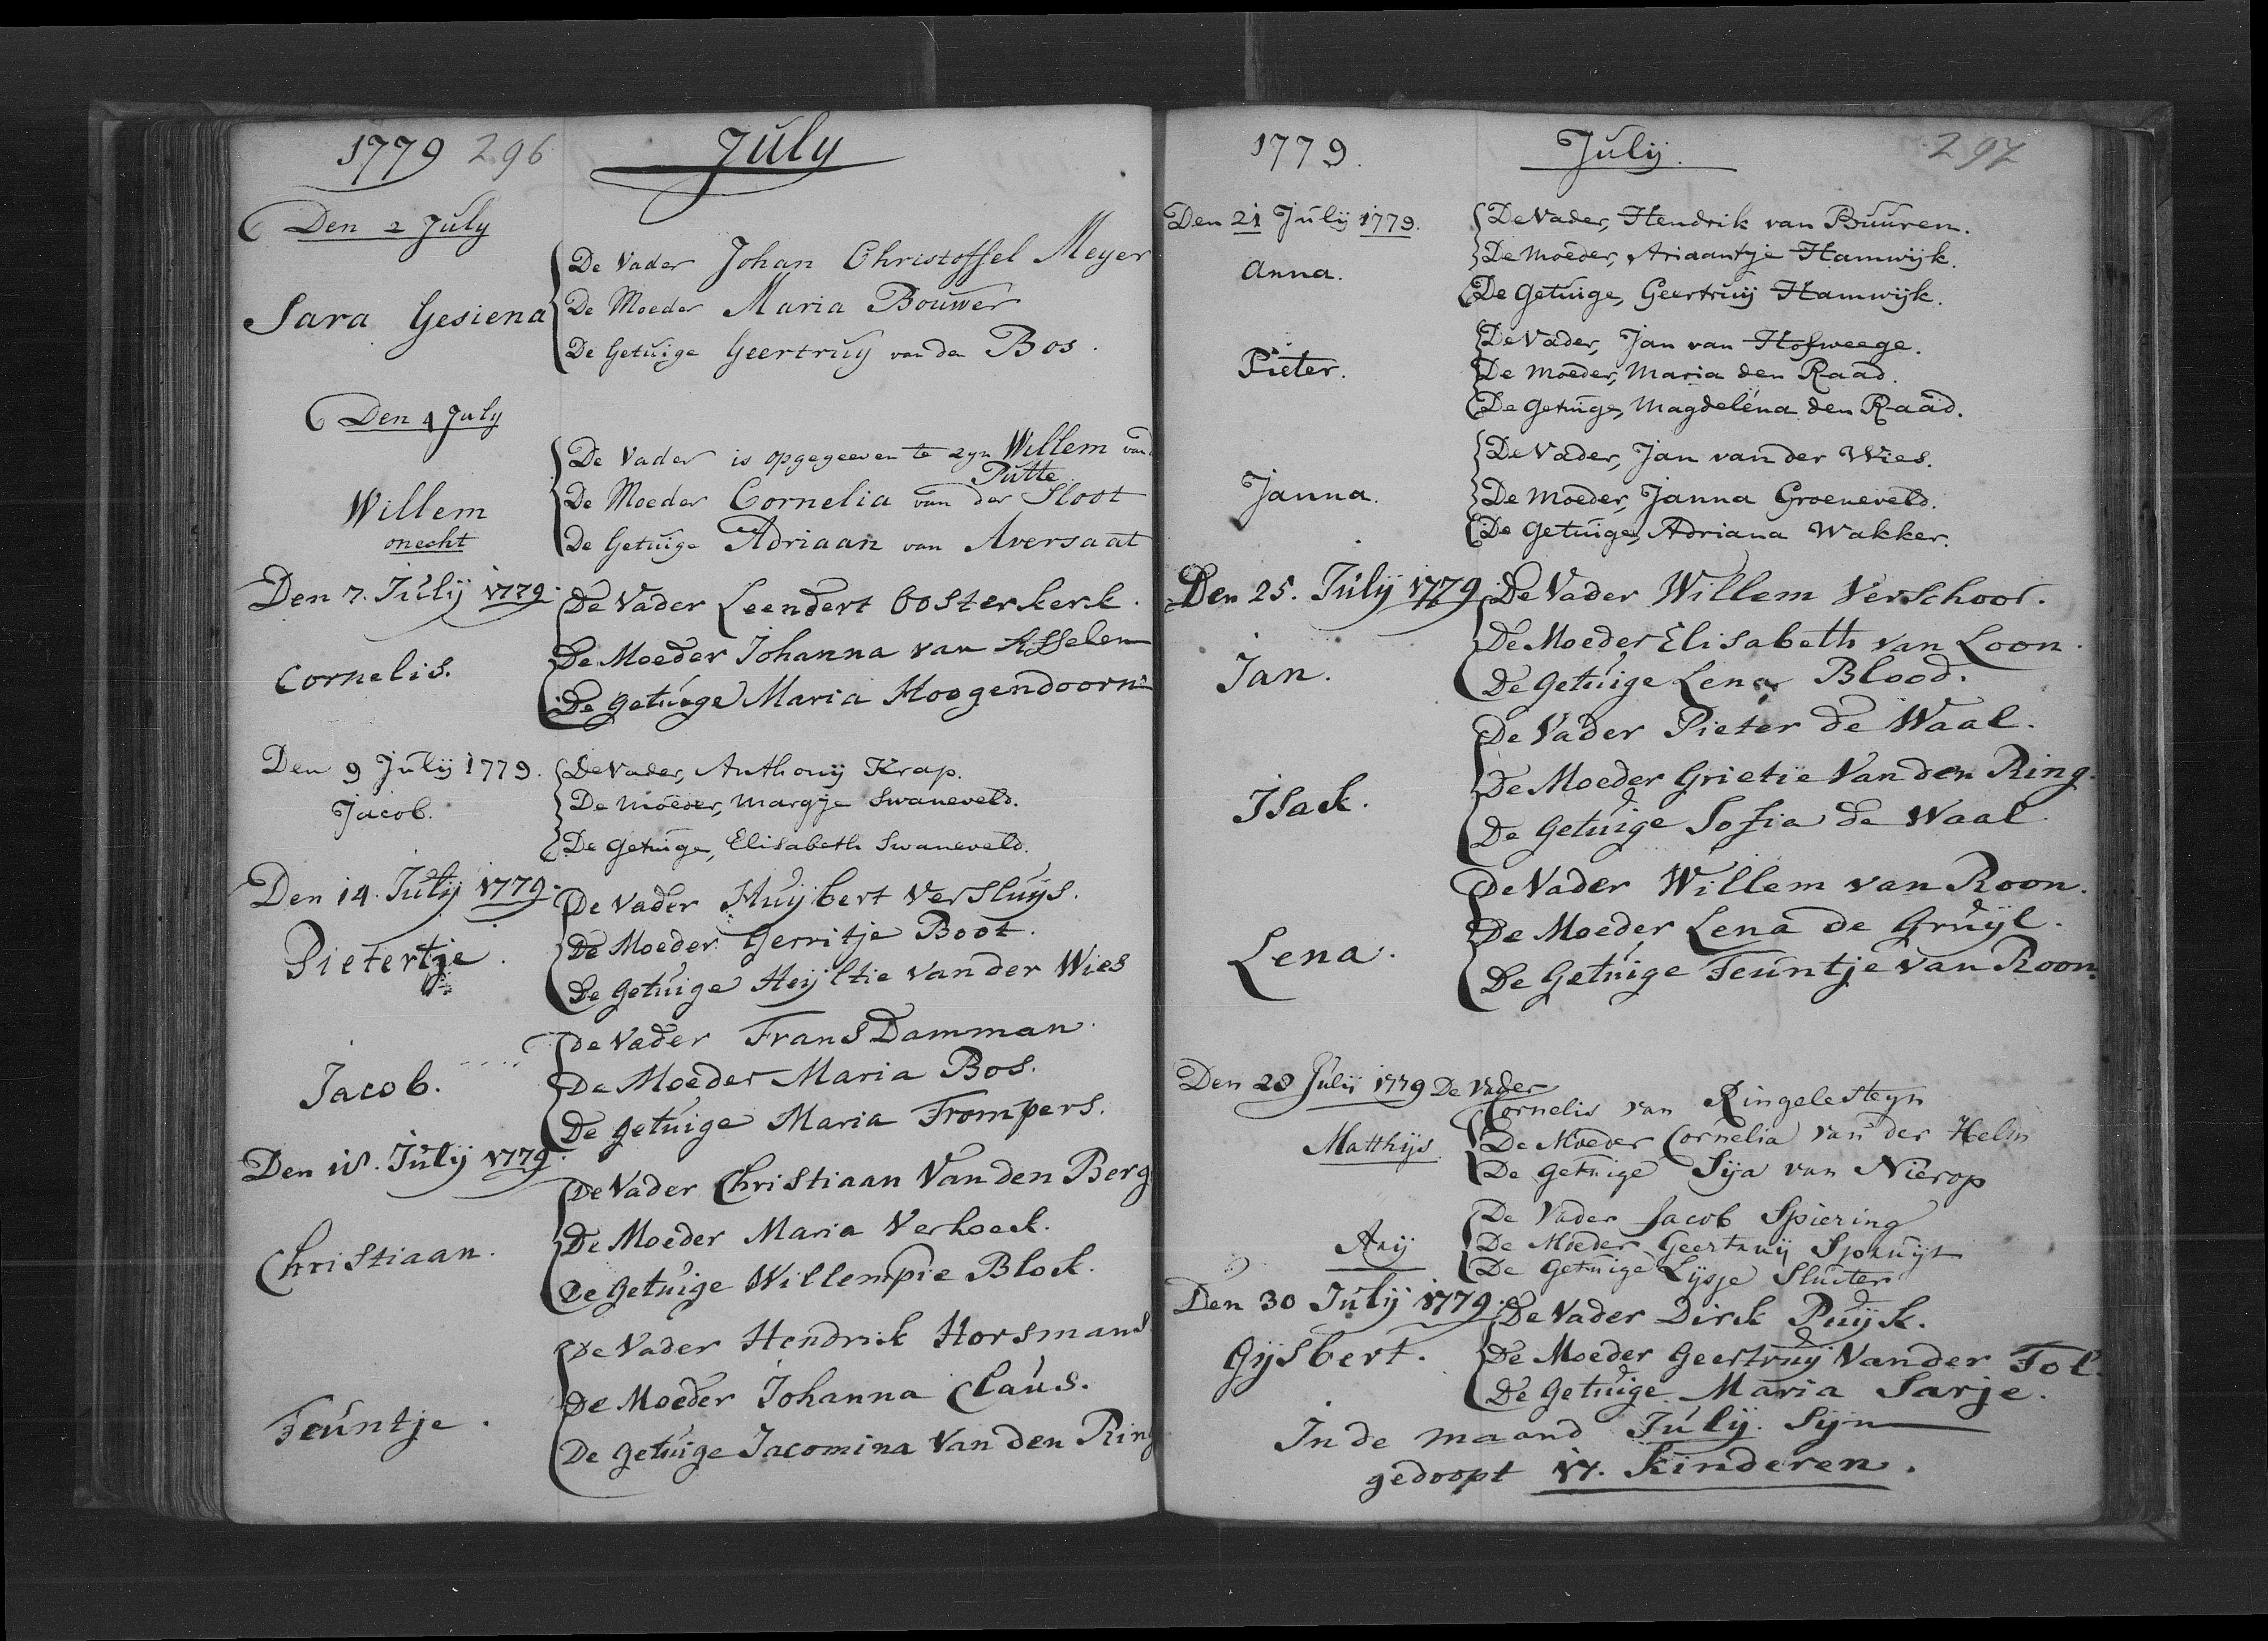 1779 296 July
Den 2 July
Sara Gesiena
De Vader Johan Christoffel Meyer
De Moeder Maria Bouwer
De Getuige Geertruy van den Bos.
Den 4 July
Willem
onecht
De Vader is opgegeeven te zyn Willem van
Putte
De Moeder Cornelia van der Sloot
De Getuige Adriaan van Aversaat
Den 7. Iulij 1779.
Cornelis.
De Vader Leendert Oosterkerk.
De Moeder Iohanna van Asselen
De getuige Maria Hoogendoorn
Den 9 Julij 1779.
Jacob.
De Vader, Anthonij Krap.
De Moeder, Margje Swaneveld.
De Getuige, Elisabeth Swaneveld.
Den 14. Iulij 1779.
Pietertje.
De Vader Huijbert Versluijs.
De Moeder Gerritje Boot.
De getuige Heijltie van der Wies
Iacob.
De Vader Frans Damman.
De Moeder Maria Bos.
De getuige Maria Trompers.
Den 18. Iulij 1779.
Christiaan.
De Vader Christiaan Van den Berg
De Moeder Maria Verhoeck.
De getuige Willempie Block.
Teuntje.
De Vader Hendrik Horsmans
De Moeder Iohanna Claus.
De getuige Iacomina Van den Ring
1779. Julij. 297
Den 21 Julij 1779.
Anna.
De Vader, Hendrik van Buuren.
De Moeder, Ariaantje Hamwijk.
De Getuige, Geertruij Hamwijk.
Pieter.
De Vader, Jan van Hofweege.
De Moeder, Maria den Raad.
De Getuige, Magdelena den Raad.
Janna.
De Vader, Jan van der Wies.
De Moeder, Janna Groeneveld.
De Getuige, Adriana Wakker.
Den 25. Iulij 1779
Ian.
De Vader Willem Verschoor.
De Moeder Elisabeth van Loon.
De Getuige Lena Blood.
Isack.
De Vader Pieter de Waal.
De Moeder Grietie Van den Ring.
De Getuige Sofia de Waal
Lena.
De Vader Willem van Roon.
De Moeder Lena de Gruijl.
De Getuige Teuntje van Roon.
Den 28 Julij 1779 De Vader
Cornelis van Ringelesteyn
Matthijs
De Moeder Cornelia van der Helm
De Getuige Sija van Nierop
Arij
De Vader Jacob Spiering
De Moeder Geertruij Spruijt
De Getuige Lijsje Sluiter
Den 30 Iulij 1779.
Gijsbert.
De Vader Dirck Puijk.
De Moeder Geertruij Van der Tol.
De Getuige Maria Sarje.
In de maand Iulij. Sijn
gedoopt 17. Kinderen.